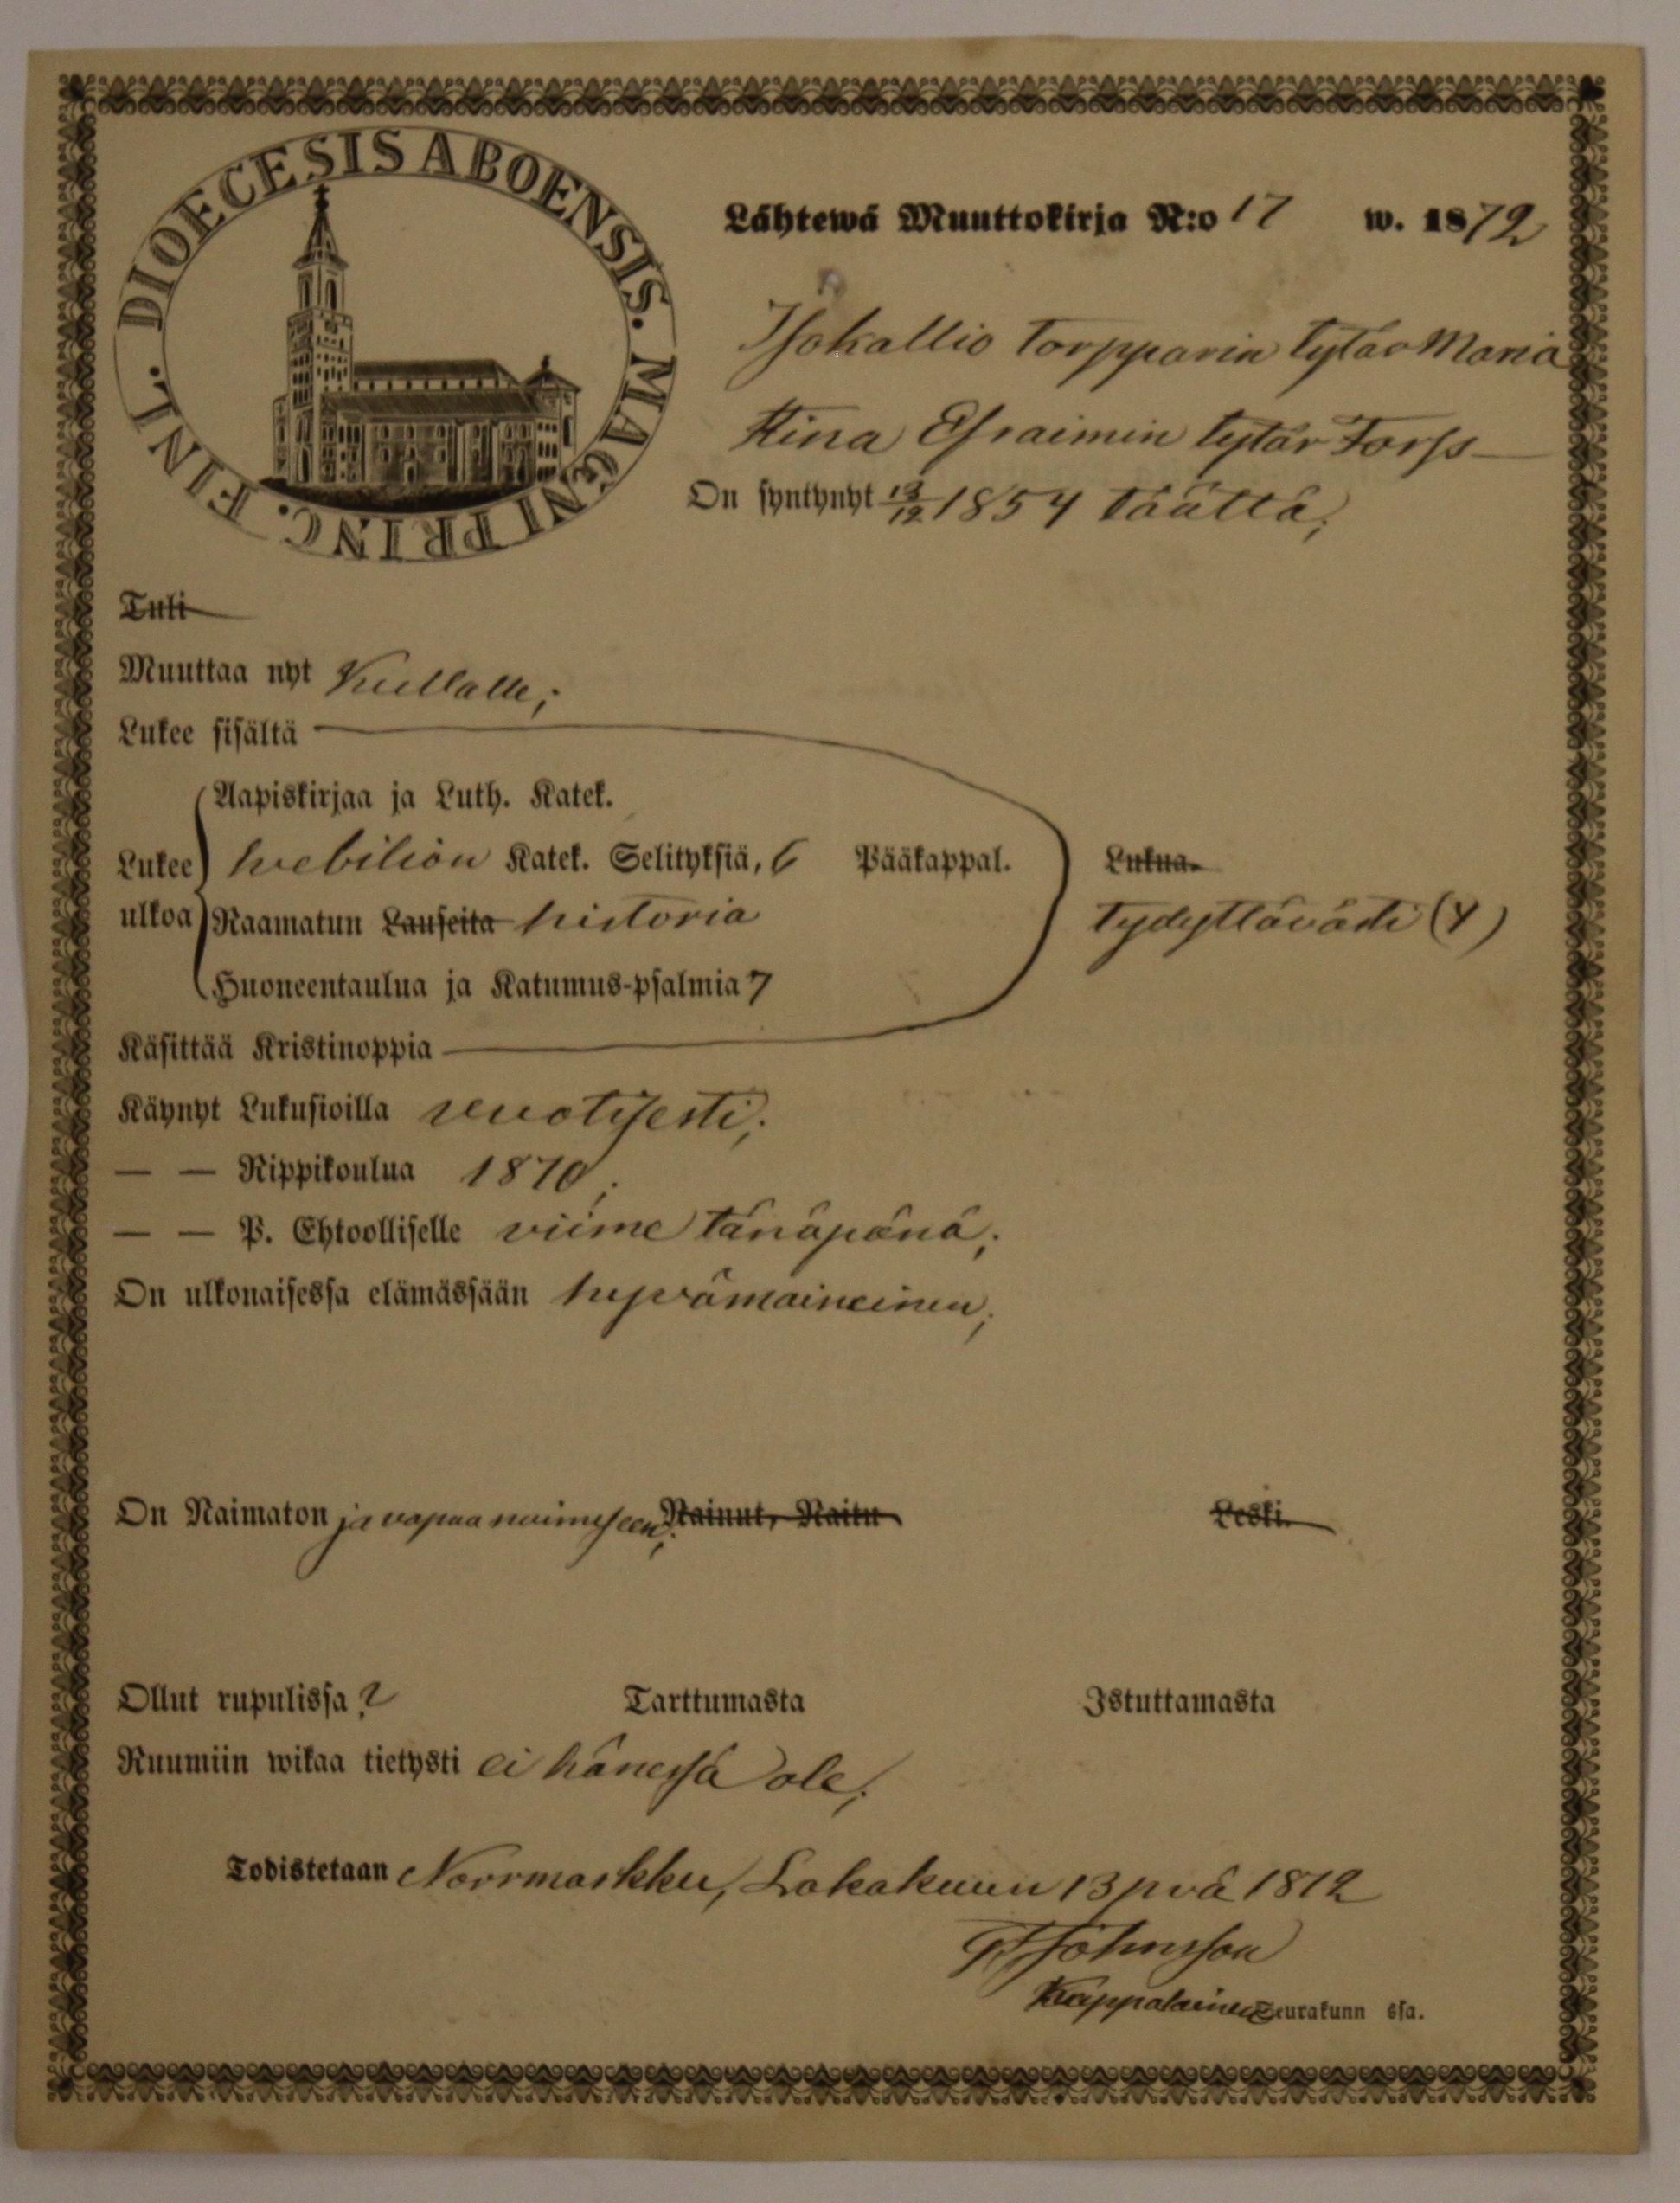 DIOECESIS ABOENSIS. MAGNI PRINC. FINL.
Lähtewä Muuttokirja N:o 17 w. 1872
Isokallio torpparin tytär Maria
Stina Efraimin tytär Forss
On syntynyt 13/12 1854 täältä;
Tuli
Muuttaa nyt Kullalle;
Lukee sisältä
Aapiskirjaa ja Luth. Katek.
Lukee Svebiliön Katek. Selityksiä, 6 Pääkappal. Lukua.
ulkoa Raamatun Lauseita historia tydyttävästi (4)
Huoneentaulua ja Katumus-psalmia 7
Käsittää Kristinoppia
Käynyt Lukusioilla vuotisesti;
— — Rippikoulua 1870;
— — P. Ehtoolliselle viime tänäpänä;
On ulkonaisessa elämässään hyvämaineinen;
On Naimaton ja vapaa naimiseen; Nainut, Naitu Leski.
Ollut rupulissa ? Tarttumasta Istuttamasta
Ruumiin wikaa tietysti ei hänessä ole;
Todistetaan Norrmarkku, Lokakuun 13 pvä 1872
Johnsson
Kappalainen Seurakunn ssa.